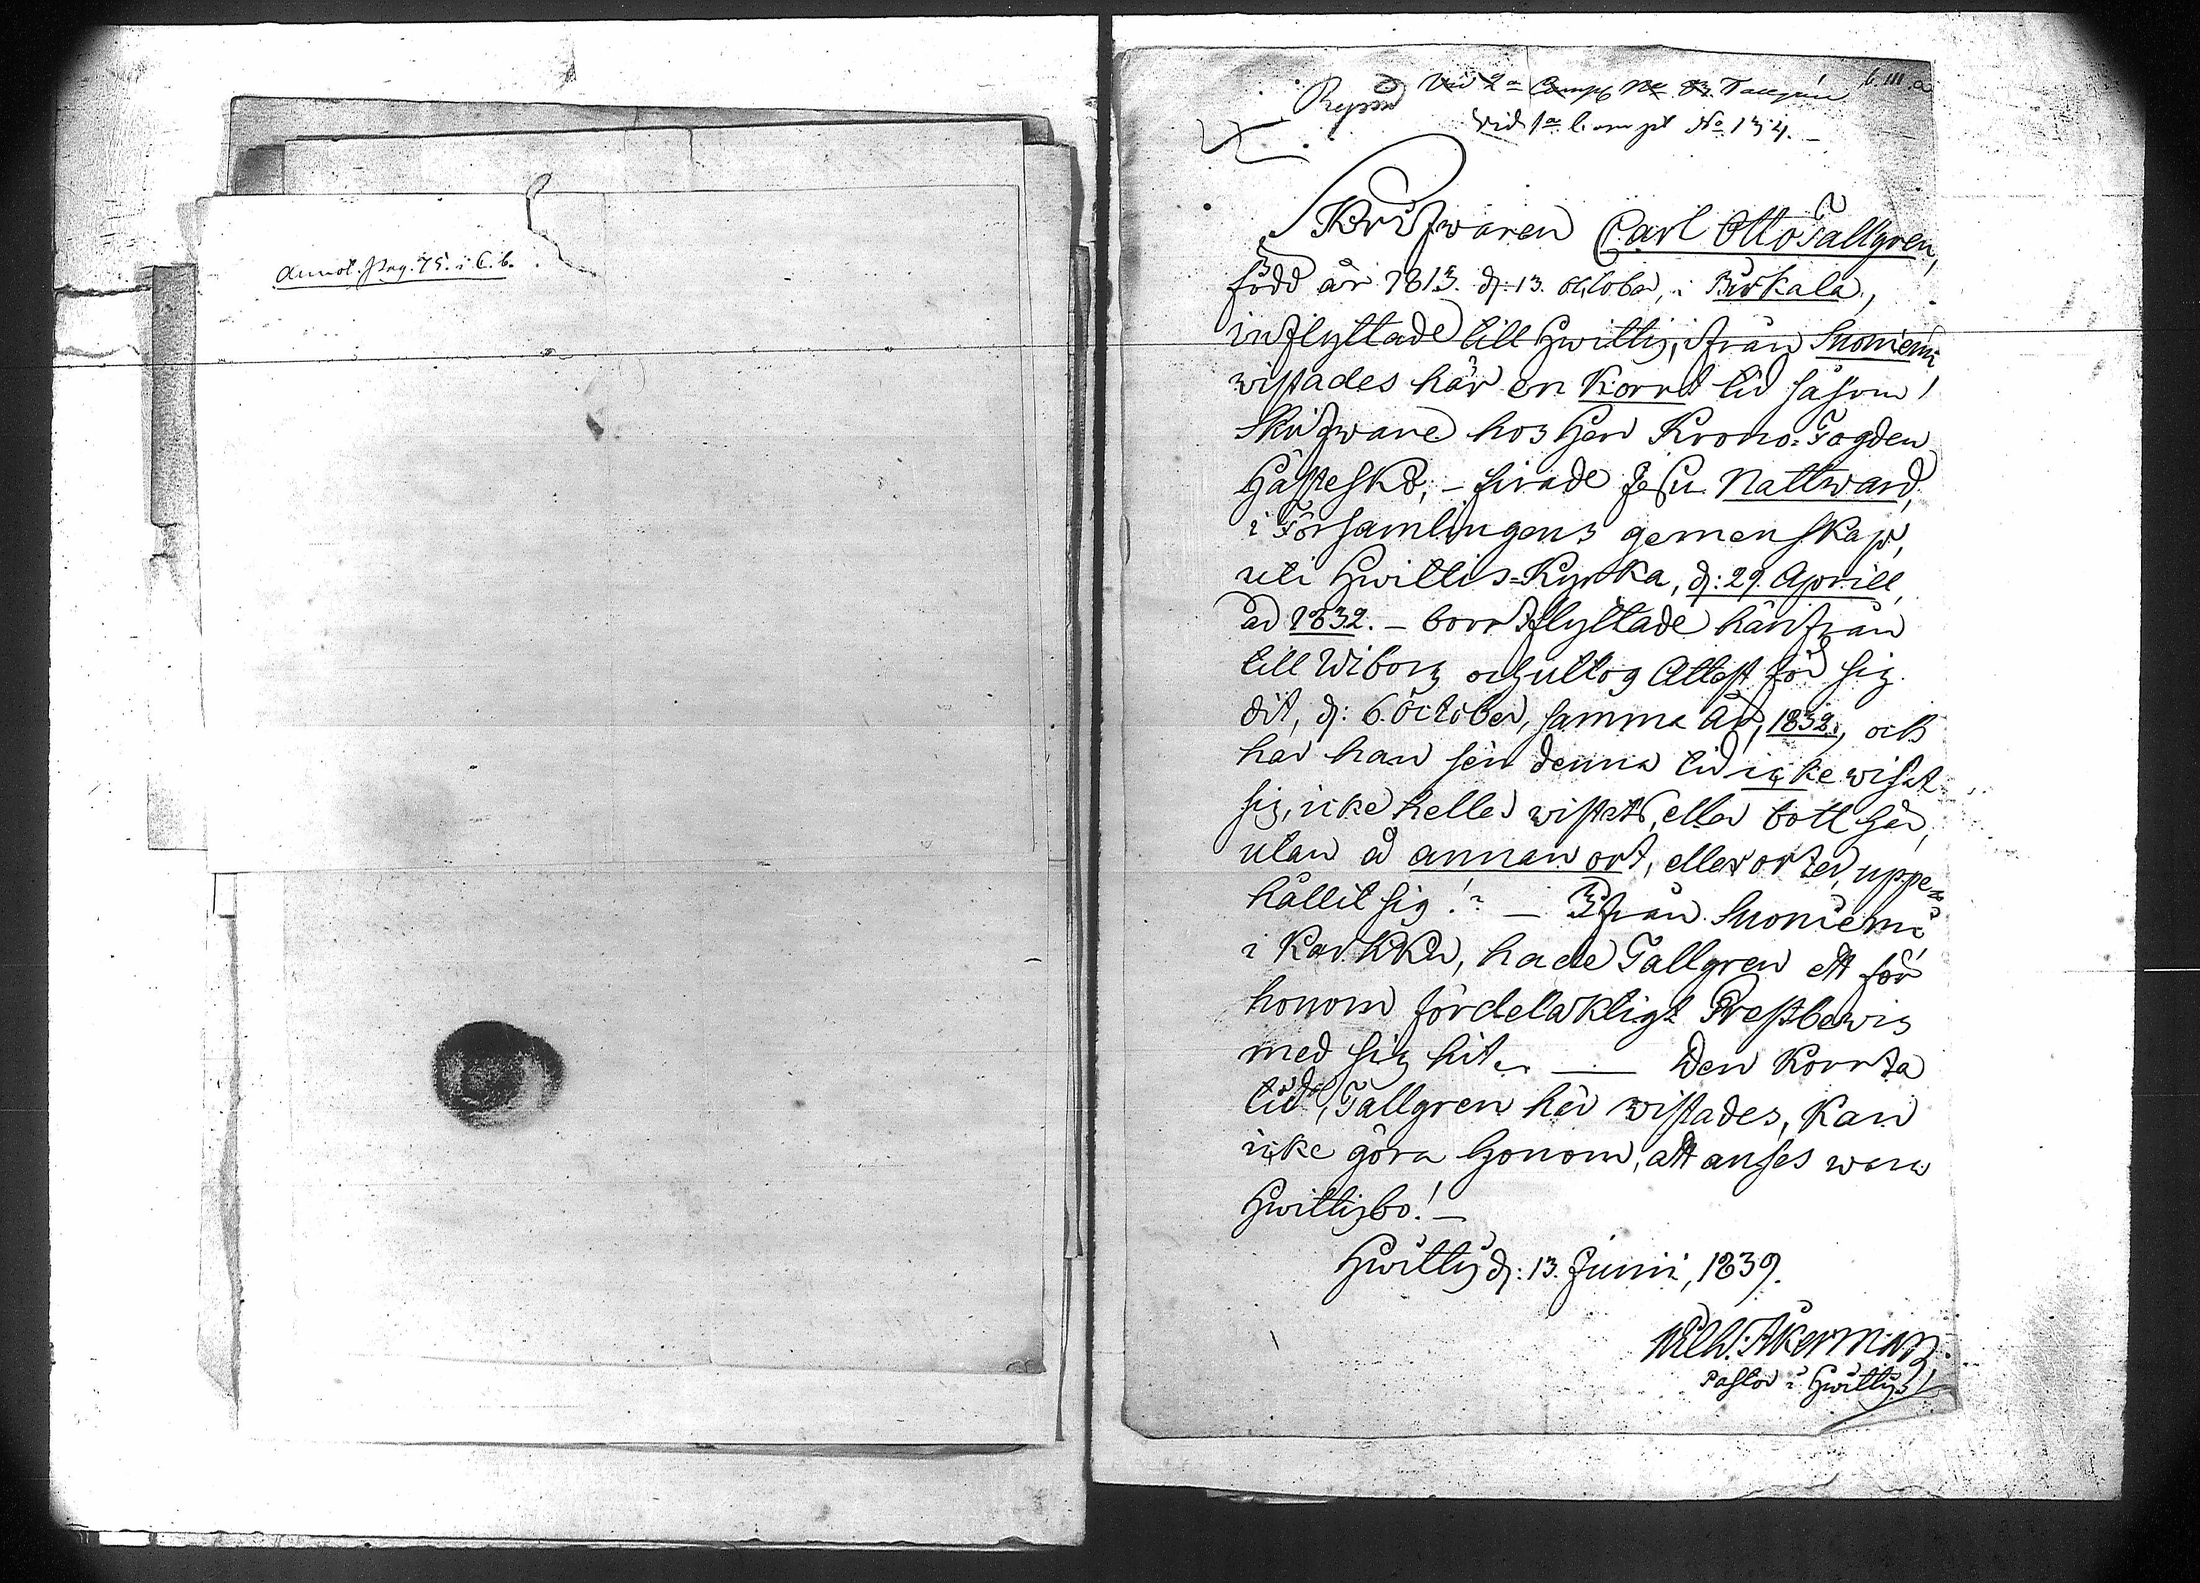 Annot. Pag. 75. i C.b.
b. III. a
Vid 2a Comp No
vid 1a Comp No 134.
Skrifwaren Carl Otto Tallgren,
född år 1813. d: 13. october, i Birkala,
inflyttade till Hwittis, ifrån Suoniemi
wistades här en Korrt tid såsom
Skrifware hos Herr Krono-Fogden
Hästesko, – firade Jesu Nattward,
i Församlingens gemenskap,
uti Hwittis-Kyrka, d: 29. Aprill,
år 1832. – borrtflyttade härifrån
till Wiborg och uttog Attest för sig
dit, d: 6. October, samma År, 1832, och
har han sen denna tid icke wisat
sig, icke heller wistats, eller bott här,
utan å annan ort, eller orter, uppe-
hållit sig! – Ifrån Suoniemi
i Karkku, hade Tallgren ett för
honom fördelaktigt Prestbewis
med sig hit. — Den Korrta
tid, Tallgren här wistades, Kan
icke göra honom, att anses wara
Hwittisbo! –
Hwittis d: 13. Junii, 1839.
Wilh. Åkerman.
Pastor i Hwittis